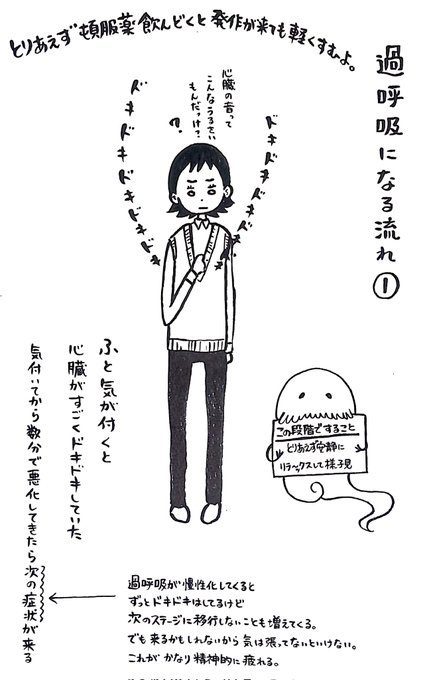 とりあえず頓服薬飲んどくと発作が来ても軽くすむよ。
過呼吸になる流れ①
心臓の音って
こんなうるさい
もんだっけ?
?
ドキドキドキドキドキ
ドキドキドキドキ
ふと気が付くと
心臓がすごくドキドキしていた
気付いてから数分で悪化してきたら次の症状が来る
この段階ですること
とりあえず安静に
リラックスして様子見
過呼吸が慢性化してくると
ずっとドキドキはしてるけど
次のステージに移行しないことも増えてくる。
でも来るかもしれないから気は張ってないといけない。
これがかなり精神的に疲れる。